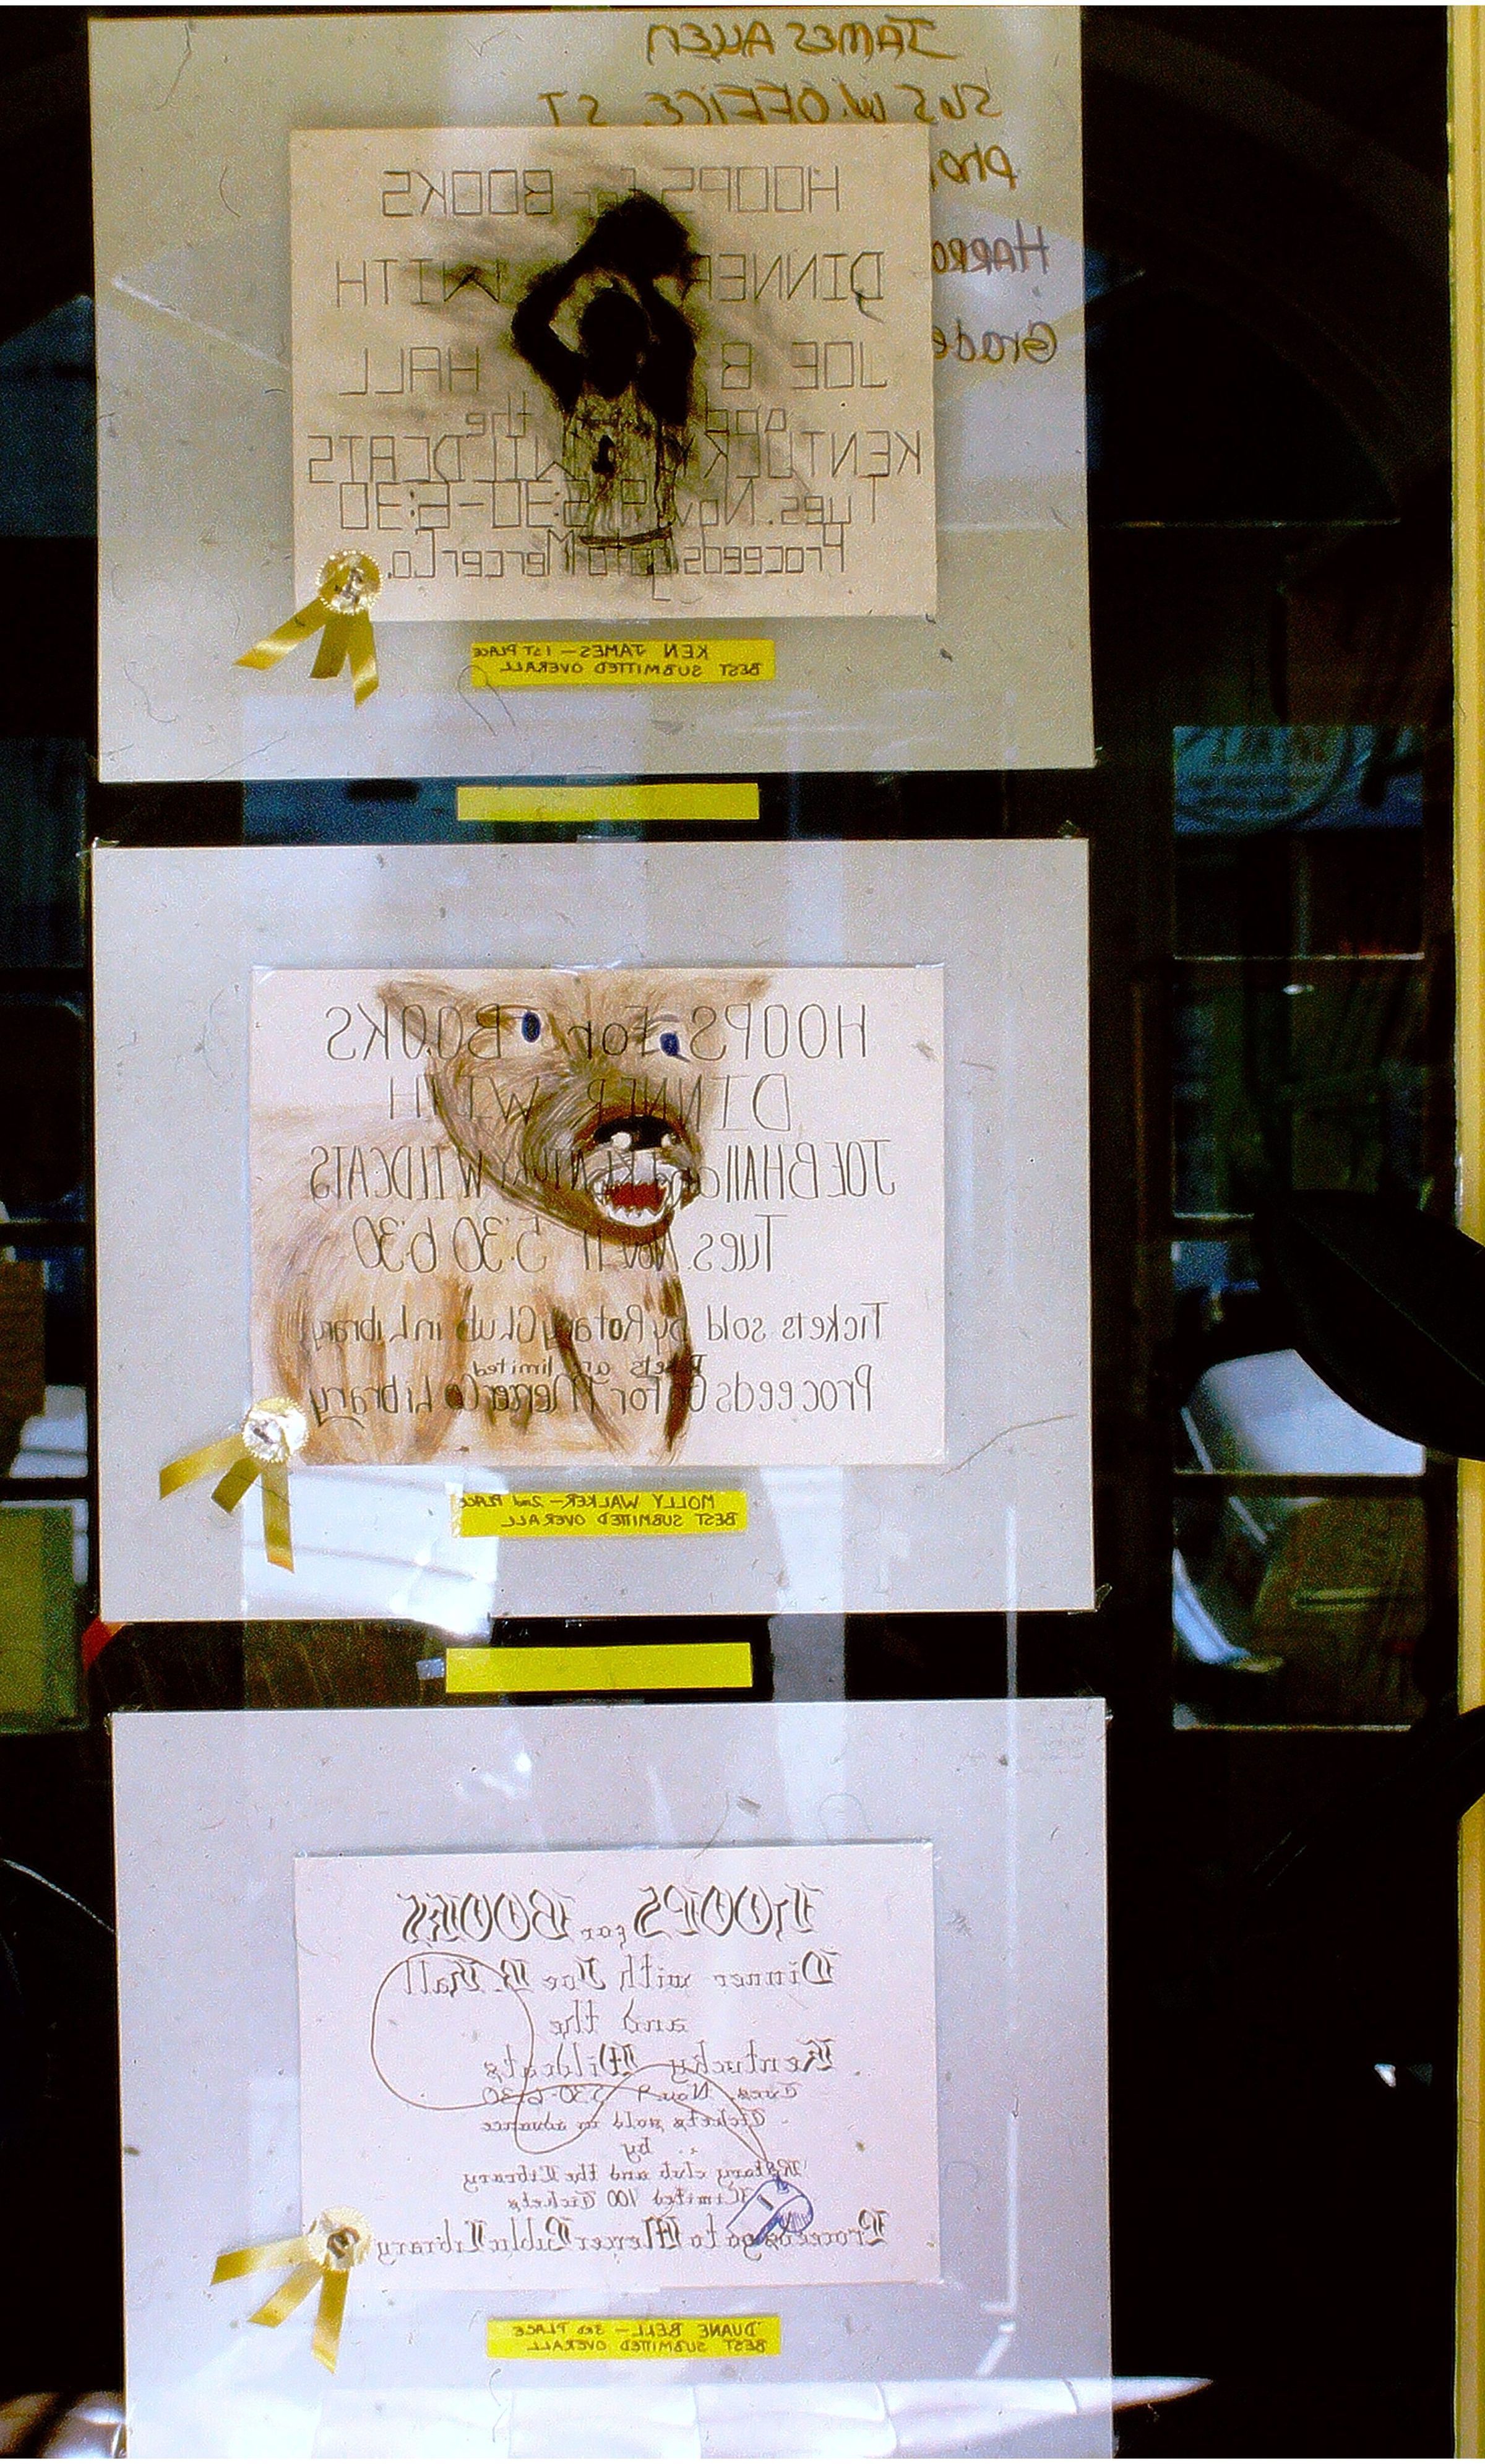 JAMES ALLEN
W. OFFICE ST
pho.
Harro
Grade
HOOPS for BOOKS
DINNER WITH
JOE B HALL
and the
KENTUCKY WILDCATS
Tues. Nov. 9 5:30-6:30
Proceeds go to Mercer Co.
KEN JAMES - 1ST PLACE
BEST SUBMITTED OVERALL
HOOPS for BOOKS
DINNER WITH
JOE B HAll and KENTUKY WILDCATS
Tues. Nov. 5:30 6:30
Tickets sold by Rotary Club in Library
Tickets are limited
Proceeds Go For Mercer Co Library
MOLLY WALKER - 2nd PLACE
BEST SUBMITTED OVERALL
HOOPS for BOOKS
Dinner with Joe B. Hall
and the
Kentucky Wildcats
Tues. Nov 9 5:30-6:30
Tickets sold in advance
by
Rotary club and the Library
Limited 100 Tickets
Proceeds go to Mercer Public Library
3
DUANE BELL - 3RD PLACE
BEST SUBMITTED OVERALL